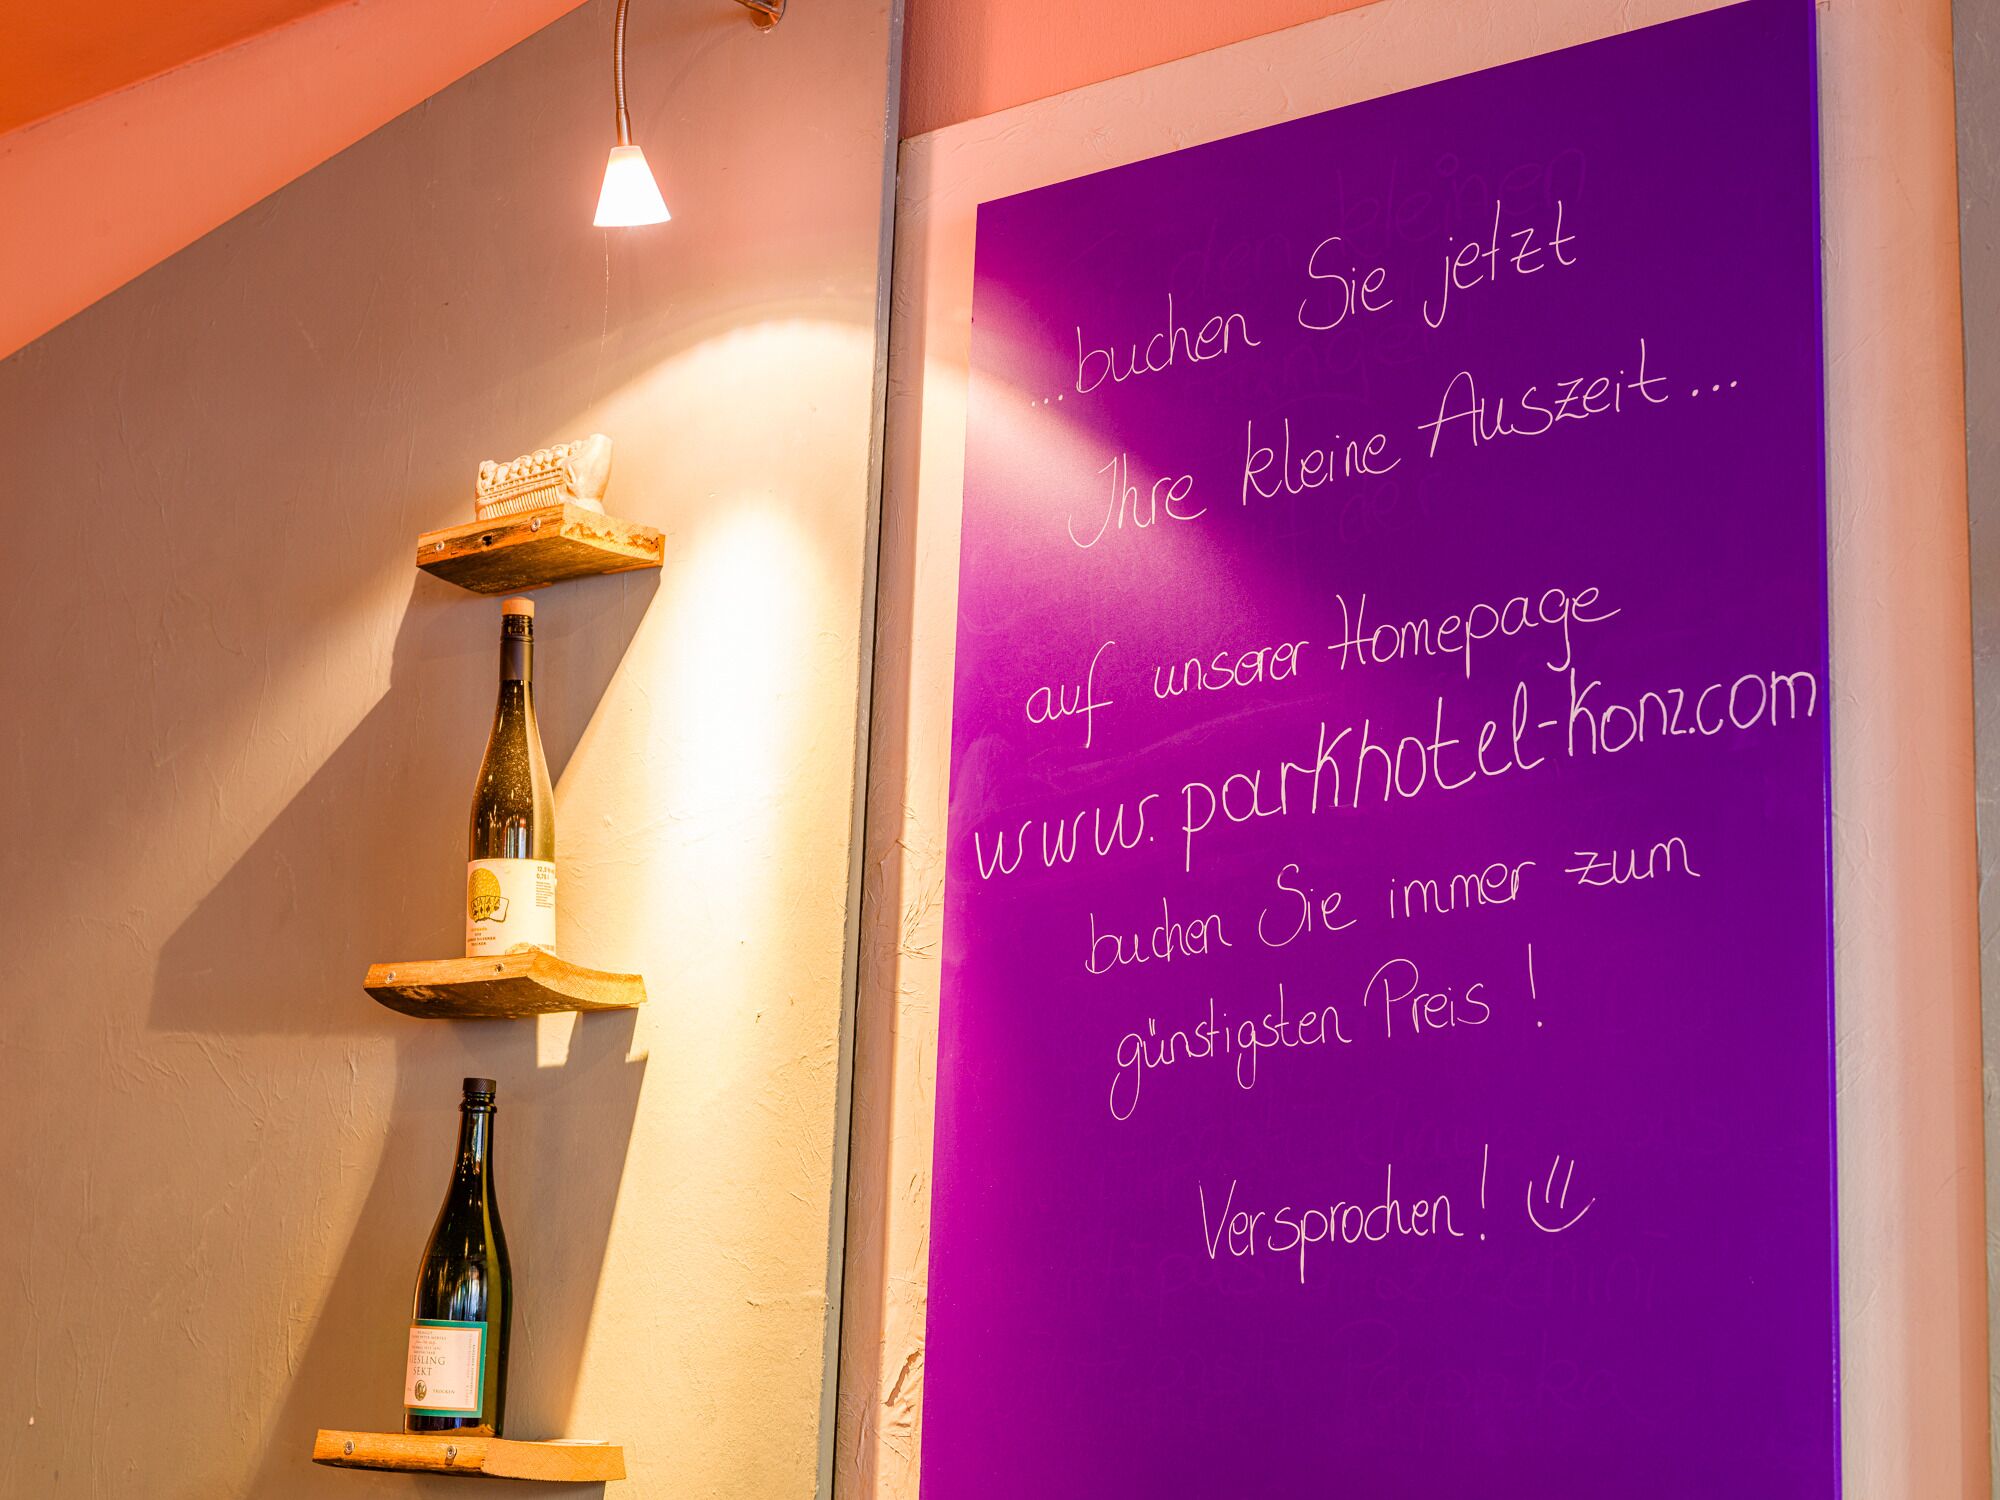 ...buchen Sie jetzt
Ihre kleine Auszeit...
auf unserer Homepage
www.parkhotel-konz.com
buchen Sie immer zum
günstigsten Preis!
Versprochen!
den kleinen
12,5
0,75 l
TROCKEN
RIESLING
SEKT
TROCKEN